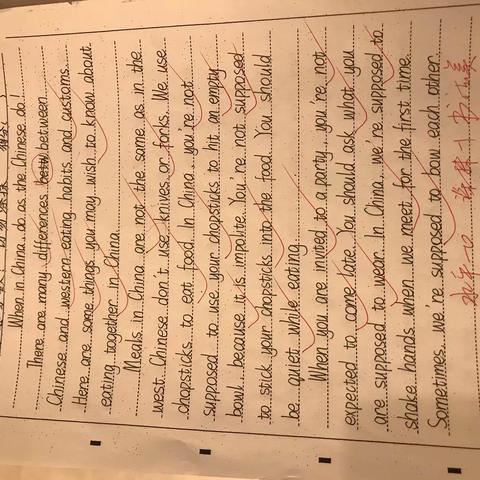 When in China, do as the Chinese do!
There are many differences between
Chinese and western eating habits and customs.
Here are some things you may wish to know about
eating together in China.
Meals in China are not the same as in the
west. Chinese don't use knives or forks. We use
chopsticks to eat food. In China, you're not
supposed to use your chopsticks to hit an empty
bowl, because it is impolite. You're not supposed
to stick your chopsticks into the food. You should
be quiet while eating.
When you are invited to a party, you're not
expected to come late. You should ask what you
are supposed to wear. In China, we're supposed to
shake hands when we meet for the first time.
Sometimes, we're supposed to bow each other.